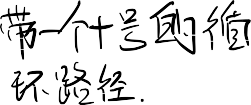 带一个十号的循
环路径.